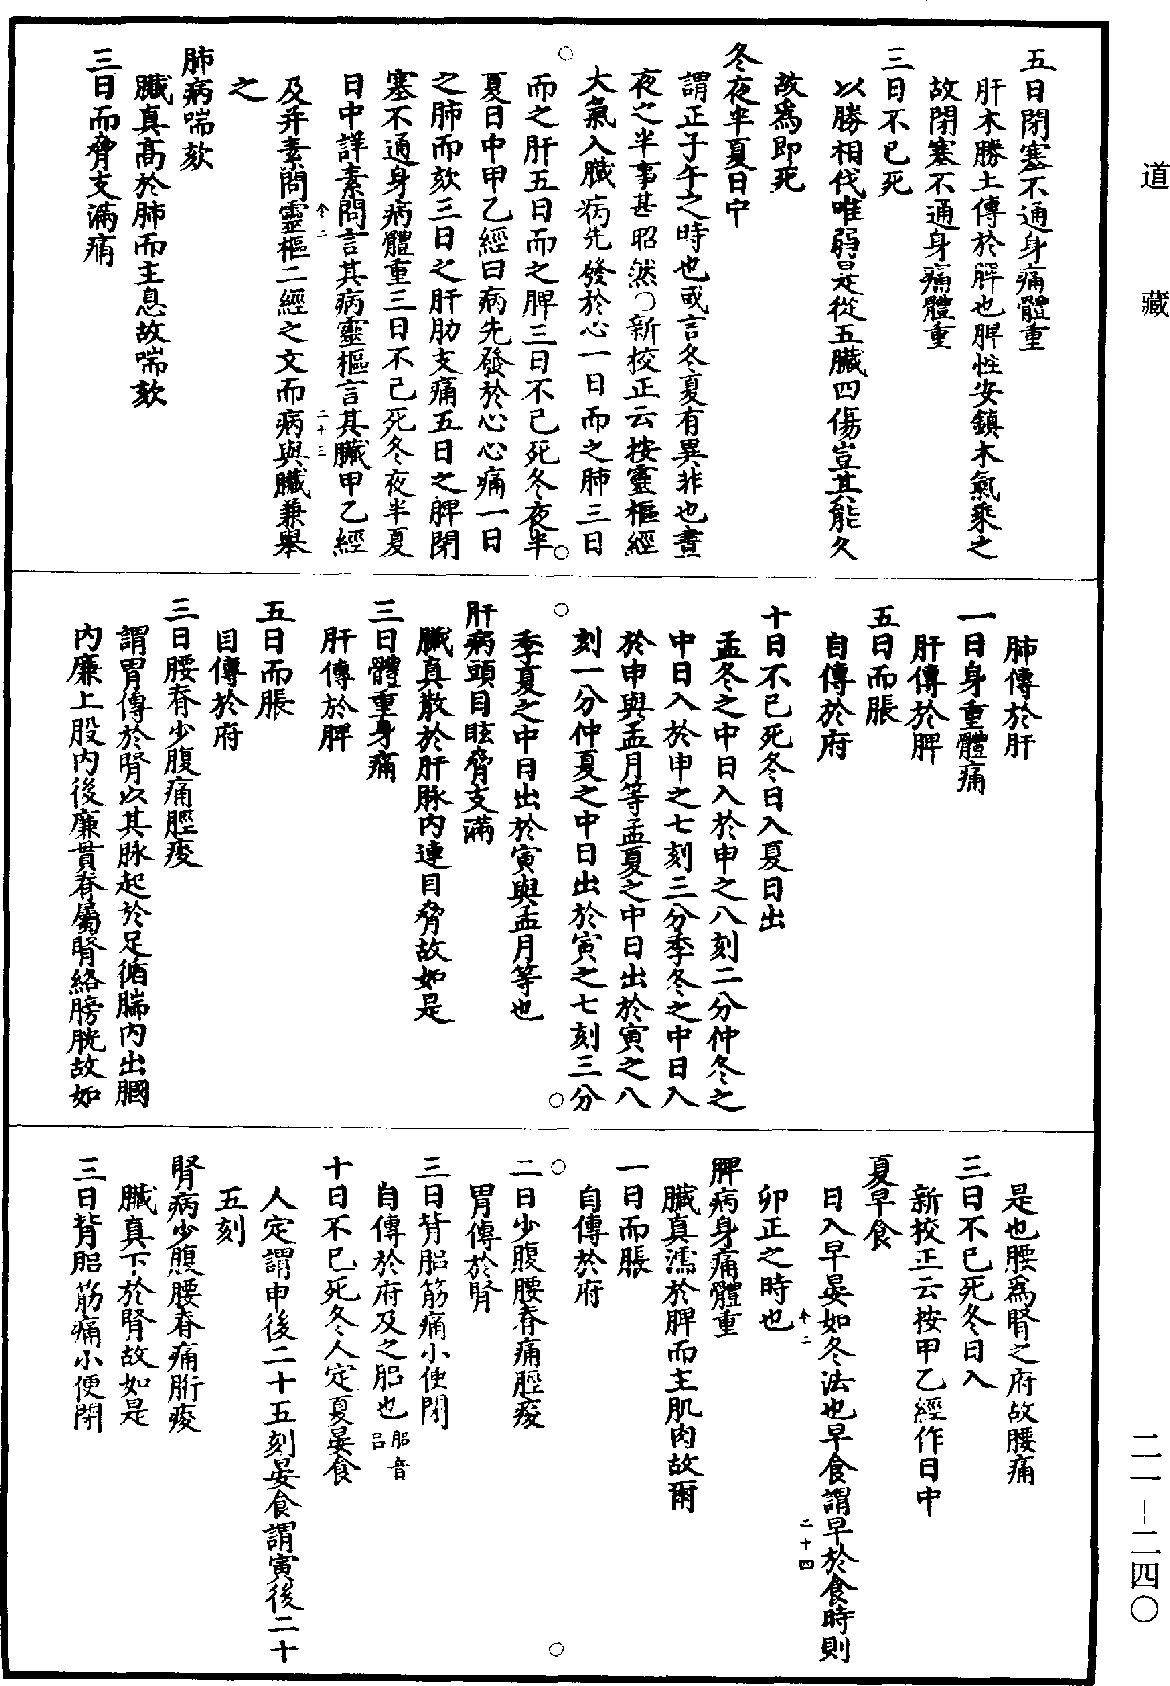 道藏
五日閉塞不通身痛體重
肝木勝土傳於脾也脾性安鎮木氣乘之
故閉塞不通身痛體重
三日不已死
以勝相伐唯弱是從五臟四傷豈其能久
故為即死
冬夜半夏日中
謂正子午之時也或言冬夏有異非也晝
夜之半事甚昭然○新校正云按靈樞經
大氣入臟病先發於心一日而之肺三日
而之肝五日而之脾三日不已死冬夜半
夏日中甲乙經曰病先發於心心痛一日
之肺而欬三日之肝肋支痛五日之脾閉
塞不通身病體重三日不已死冬夜半夏
日中詳素問言其病靈樞言其臟甲乙經
卷二
二十三
及并素問靈樞二經之文而病與臟兼舉
之
肺病喘欬
臟真高於肺而主息故喘欬
三日而脅支滿痛
肺傳於肝
一日身重體痛
肝傳於脾
五日而脹
自傳於府
十日不已死冬日入夏日出
孟冬之中日入於申之八刻二分仲冬之
中日入於申之七刻三分季冬之中日入
於申與孟月等孟夏之中日出於寅之八
刻一分仲夏之中日出於寅之七刻三分
季夏之中日出於寅與孟月等也
肝病頭目眩脅支滿
臟真散於肝脉內連目脅故如是
三日體重身痛
肝傳於脾
五日而脹
自傳於府
三日腰脊少腹痛脛痠
謂胃傳於腎以其脉起於足循腨內出膕
內廉上股內後廉貫脊屬腎絡膀胱故如
是也腰為腎之府故腰痛
三日不已死冬日入
新校正云按甲乙經作日中
夏早食
日入早晏如冬法也早食謂早於食時則
卷二
二十四
卯正之時也
脾病身痛體重
臟真濡於脾而主肌肉故爾
一日而脹
自傳於府
二日少腹腰脊痛脛痠
胃傳於腎
三日背䏚筋痛小便閉
自傳於府及之䏚也䏚音呂
十日不已死冬人定夏晏食
人定謂申後二十五刻晏食謂寅後二十
五刻
腎病少腹腰脊痛胻痠
臟真下於腎故如是
三日背䏚筋痛小便閉
二一—二四〇